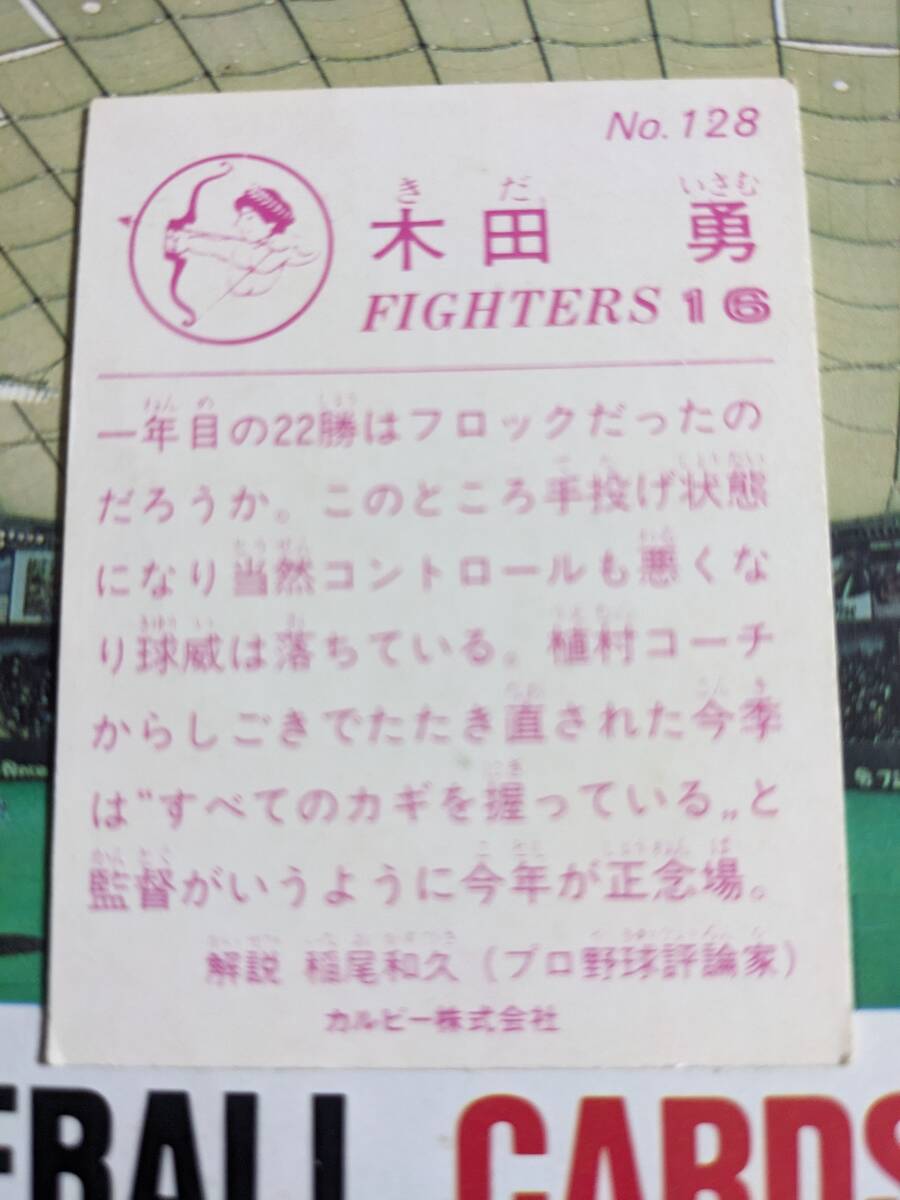 No.128
木田 勇
きだ いさむ
FIGHTERS 16
一年目の22勝はフロックだったの
だろうか。このところ手投げ状態
になり当然コントロールも悪くな
り球威は落ちている。植村コーチ
からしごきでたたき直された今季
は"すべてのカギを握っている„と
監督がいうように今年が正念場。
解説 稲尾和久 (プロ野球評論家)
カルビー株式会社
BALL CARDS